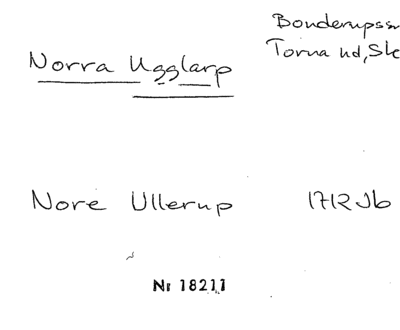 Bonderupssn
Torna hd, Sk
Norra Ugglarp
Nore Ullerup 1712 Jb
Nr 18211